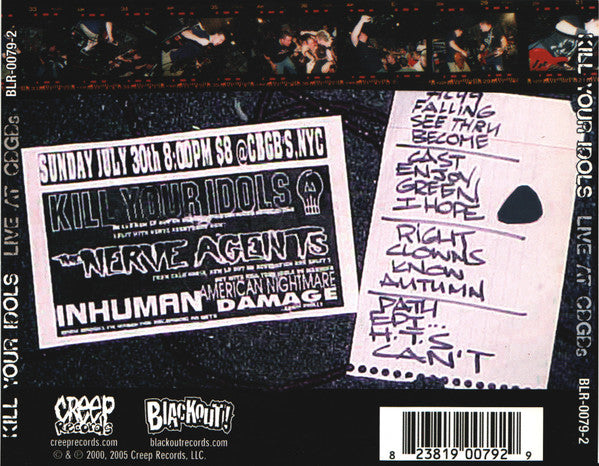 BLR-0079-2
KILL YOUR IDOLS LIVE AT CBGBs
SUNDAY JULY 30th 8:00PM $8 @CBGB'S, NYC
KILL YOUR IDOLS
THE NERVE AGENTS
INHUMAN
AMERICAN NIGHTMARE
DAMAGE
FALLING
SEE THRU
BECOME
LAST
ENJOY
GREEN
I HOPE
RIGHT
CLOWNS
KNOW
AUTUMN
PATH
EPI...
H.T.S
CAN'T
KILL YOUR IDOLS LIVE AT CBGBs
BLR-0079-2
CREEP
Records
creeprecords.com
BLACKOUT!
blackoutrecords.com
© & ℗ 2000, 2005 Creep Records, LLC.
8 23819 00792 9